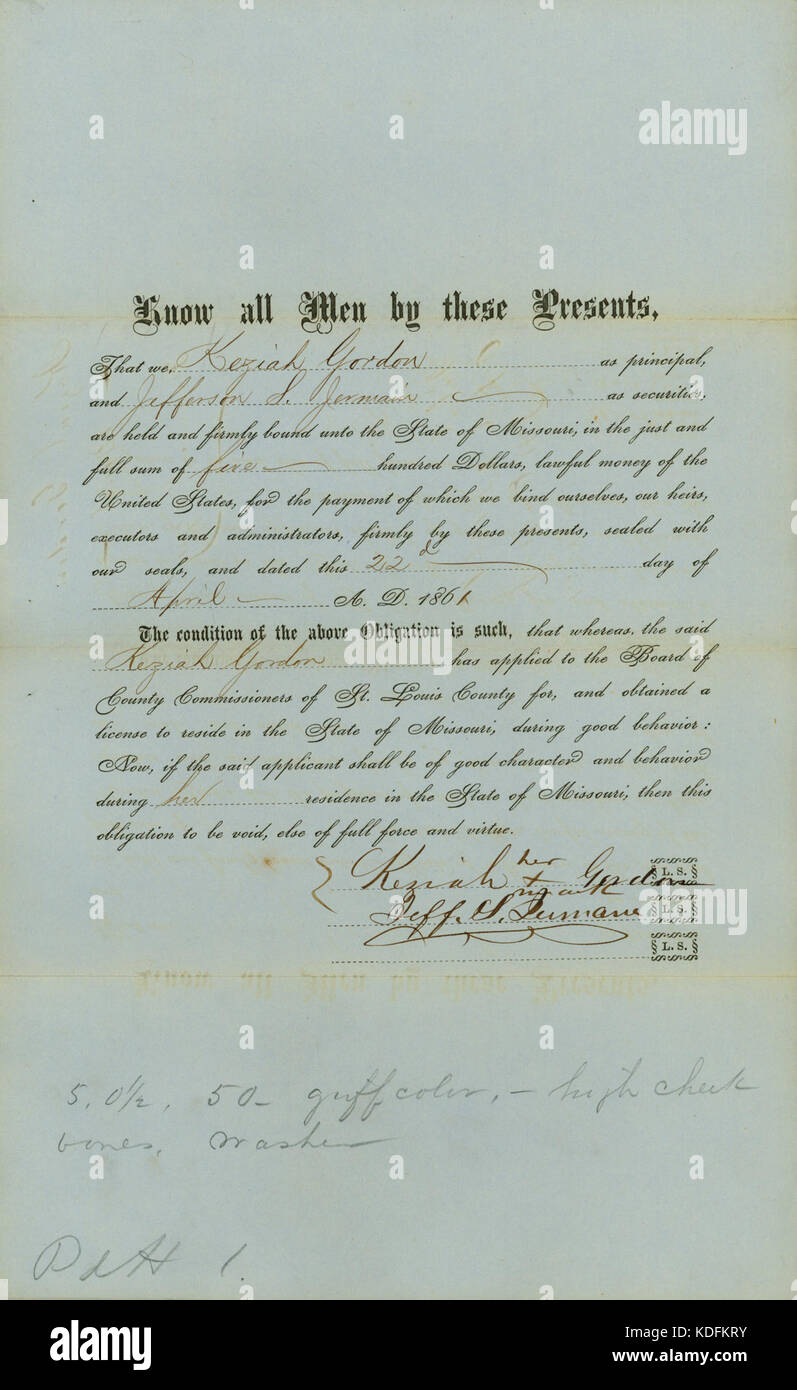 Know all Men by these Presents,
That we, Keziah Gordon as principal,
and Jefferson S. Jermain as securities,
are held and firmly bound unto the State of Missouri, in the just and
full sum of five hundred Dollars, lawful money of the
United States, for the payment of which we bind ourselves, our heirs,
executors and administrators, firmly by these presents, sealed with
our seals, and dated this 22d day of
April A. D. 1861
The condition of the above Obligation is such, that whereas, the said
Keziah Gordon has applied to the Board of
County Commissioners of St. Louis County for, and obtained a
license to reside in the State of Missouri, during good behavior:
Now, if the said applicant shall be of good character and behavior
during her residence in the State of Missouri, then this
obligation to be void, else of full force and virtue.
Keziah her + mark Gordon L. S.
Jeff. S. Jermain L. S.
L. S.
5, 0 1/2, 50- color, - high cheek
bones, washer
alamy
Image ID: KDFKRY
www.alamy.com